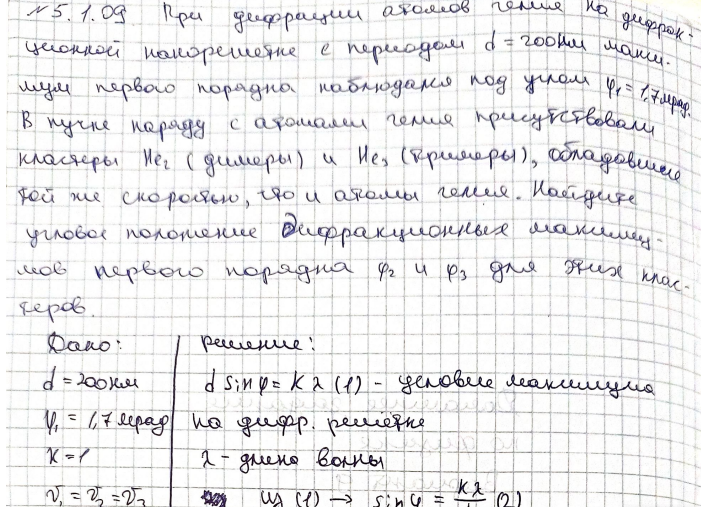 №5.1.09 При дифракции атомов гелия на дифрак-
ционной нанорешетке с периодом d = 200нм макси-
мум первого порядка наблюдался под углом φ₁ = 1,7мрад.
В пучке наряду с атомами гелия присутствовали
кластеры He₂ (димеры) и He₃ (тримеры), обладавшие
той же скоростью, что и атомы гелия. Найдите
угловое положение дифракционных максиму-
мов первого порядка φ₂ и φ₃ для этих клас-
теров.
Дано: Решение:
d = 200нм d sinφ = Kλ (1) - условие максимума
φ₁ = 1,7мрад на дифр. решётке
K=1 λ - длина волны
v₁ = v₂ = v₃ из (1) → sinφ = Kλ/d (2)